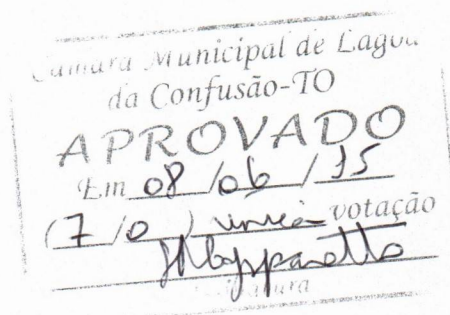 Câmara Municipal de Lagoa
da Confusão-TO
APROVADO
Em 08/06/15
(7/0) única votação